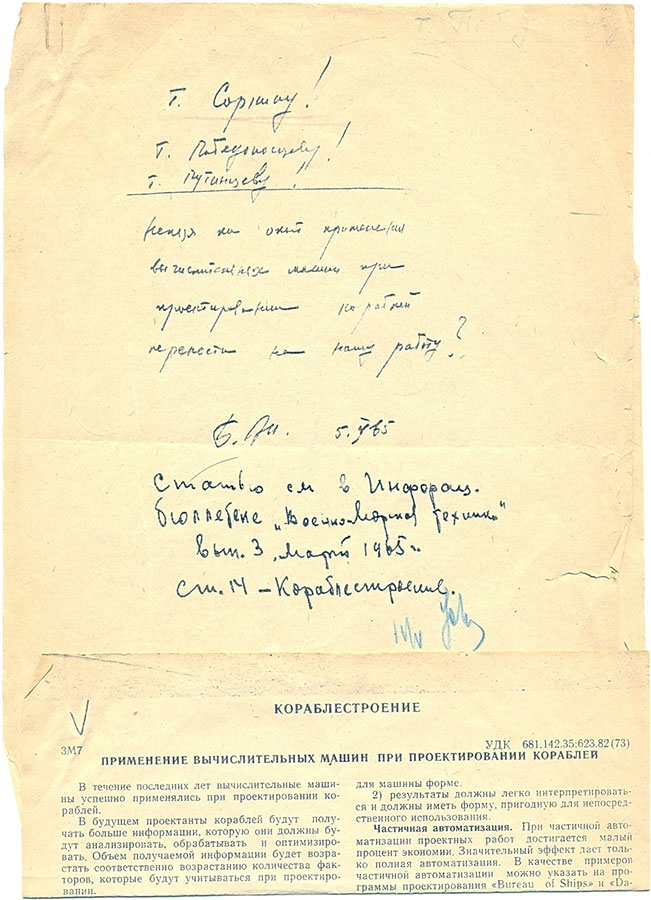 т. Соркину!
т. Победоносцеву!
т. Путинцеву!
Нельзя ли опыт применения
вычислительных машин при
проектировании кораблей
перенести на нашу работу?
5.V 65
Статью см в Информац.
бюллетене „Военно-Морская техника"
вып. 3, март 1965 г.
ст. 14 – Кораблестроение.
КОРАБЛЕСТРОЕНИЕ
3М7
УДК 681.142.35:623.82(73)
ПРИМЕНЕНИЕ ВЫЧИСЛИТЕЛЬНЫХ МАШИН ПРИ ПРОЕКТИРОВАНИИ КОРАБЛЕЙ
В течение последних лет вычислительные маши-
ны успешно применялись при проектировании ко-
раблей.
В будущем проектанты кораблей будут полу-
чать больше информации, которую они должны бу-
дут анализировать, обрабатывать и оптимизиро-
вать. Объем получаемой информации будет возра-
стать соответственно возрастанию количества фак-
торов, которые будут учитываться при проектиро-
вании.
для машины форме.
2) результаты должны легко интерпретировать-
ся и должны иметь форму, пригодную для непосред-
ственного использования.
Частичная автоматизация. При частичной авто-
матизации проектных работ достигается малый
процент экономии. Значительный эффект дает толь-
ко полная автоматизация. В качестве примеров
частичной автоматизации можно указать на про-
граммы проектирования «Bureau of Ships» и «Da-